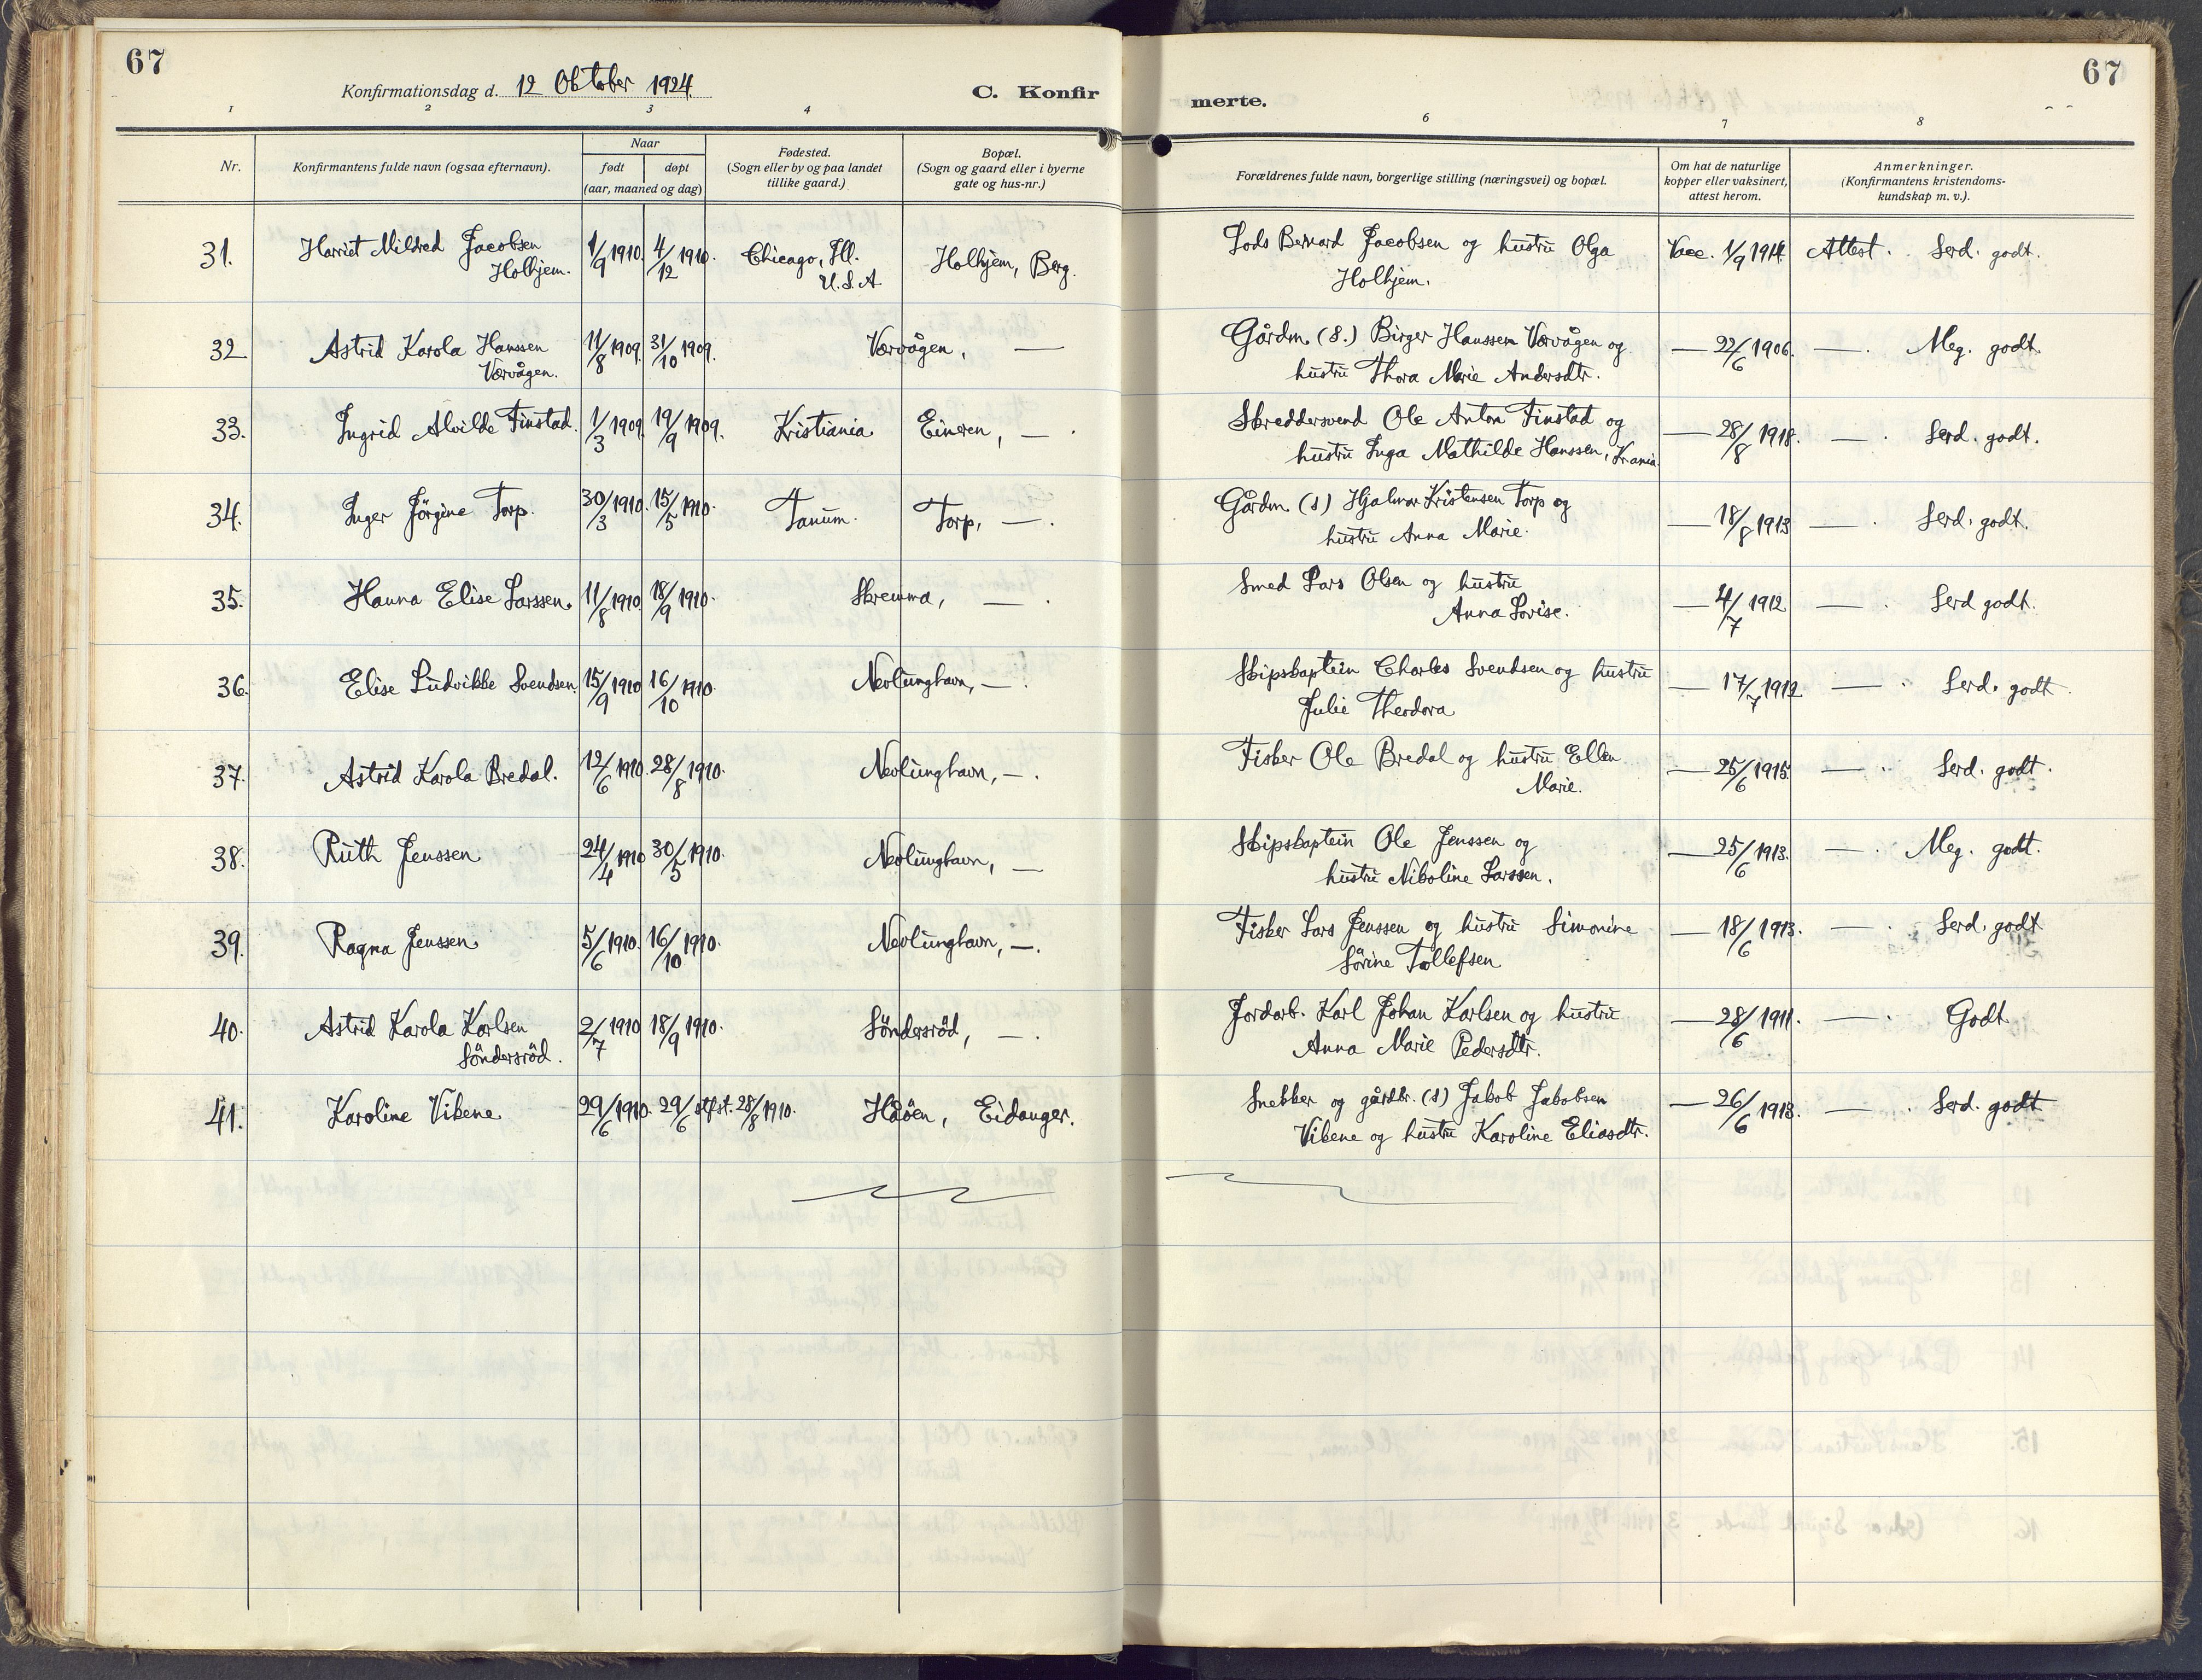 67
Konfirmationsdag d. 12 Oktober 1924.
C. Konfir
merte.
67
1 2 3 4 6 7 8
Nr.
Konfirmantens fulde navn (ogsaa efternavn).
Naar
født døpt
(aar, maaned og dag)
Fødested.
(Sogn eller by og paa landet
tillike gaard.)
Bopæl.
(Sogn og gaard eller i byerne
gate og hus-nr.)
Forældrenes fulde navn, borgerlige stilling (næringsvei) og bopæl.
Om hat de naturlige
kopper eller vaksinert,
attest herom.
Anmerkninger.
(Konfirmantens kristendoms-
kundskap m. v.).
31. Harriet Mildred Jacobsen 1/9 1910. 4/12 1910. Chicago, Ill. Holhjem, Berg. Lods Bernard Jacobsen og hustru Olga Vacc. 1/9 1914. Attest. Serd. godt.
Holhjem. U.S.A Holhjem.
32 Astrid Karola Hanssen 11/8 1909. 31/10 1909. Værvågen, — Gårdm. (S.) Birger Hanssen Værvågen og — 22/6 1906. — . Meg. godt.
Værvågen. hustru Thora Marie Andersdtr.
33. Ingrid Alvilde Finstad. 1/3 1909. 19/9 1909. Kristiania Eineren, — . Skreddersvend Ole Anton Finstad og — 28/8 1918. — . Serd. godt.
hustru Inga Mathilde Hanssen, Kr.ania.
34. Inger Jörgine Torp. 30/3 1910. 15/5 1910. Tanum. Torp, — . Gårdm. (S) Hjalmar Kristensen Torp og — 18/8 1913 — . Serd. godt.
hustru Anna Marie.
35. Hanna Elise Larssen. 11/8 1910. 18/9 1910. Skremma, — . Smed Lars Olsen og hustru — 4/7 1912 — . Serd godt.
Anna Lovise.
36. Elise Ludvikke Svendsen. 15/9 1910 16/10 1910. Nevlunghavn, — . Skipskaptein Charles Svendsen og hustru — 17/7 1912 — . Serd. godt
Julie Theodora
37. Astrid Karola Bredal. 12/6 1910. 28/8 1910. Nevlunghavn, — . Fisker Ole Bredal og hustru Ellen — 25/6 1915. — . Serd. godt.
Marie.
38. Ruth Jenssen 24/4 1910 30/5 1910. Nevlunghavn, — Skipskaptein Ole Jenssen og — 25/6 1913. — . Meg. godt.
hustru Nikoline Larssen.
39. Ragna Jenssen 5/6 1910. 16/10 1910. Nevlunghavn, — . Fisker Lars Jenssen og hustru Simonine — 18/6 1913. — . Serd. godt
Sörine Tollefsen
40. Astrid Karola Karlsen 2/7 1910 18/9 1910. Söndersröd, — . Jordarb. Karl Johan Karlsen og hustru — 28/6 1911. — . Godt
Söndersröd. Anna Marie Pedersdtr.
41. Karoline Vikene 29/6 1910. 29/6 stfst. 28/8 1910. Håöen, Eidanger. Snekker og gårdbr. (S) Jakob Jakobsen — 26/6 1913. — . Serd. godt
Vikene og hustru Karoline Eliasdtr.